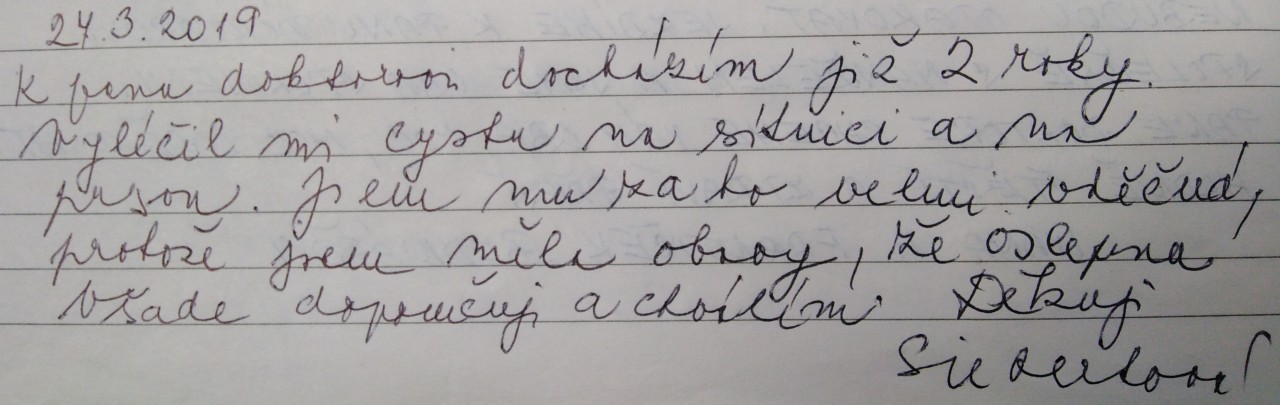 24.3.2019
K panu doktorovi docházím již 2 roky.
Vyléčil mi cystu na sítnici a na
prsou. Jsem mu za to velmi vděčná,
protože jsem měla obavy, že oslepna
Všade doporučuji a chválím. Děkuji